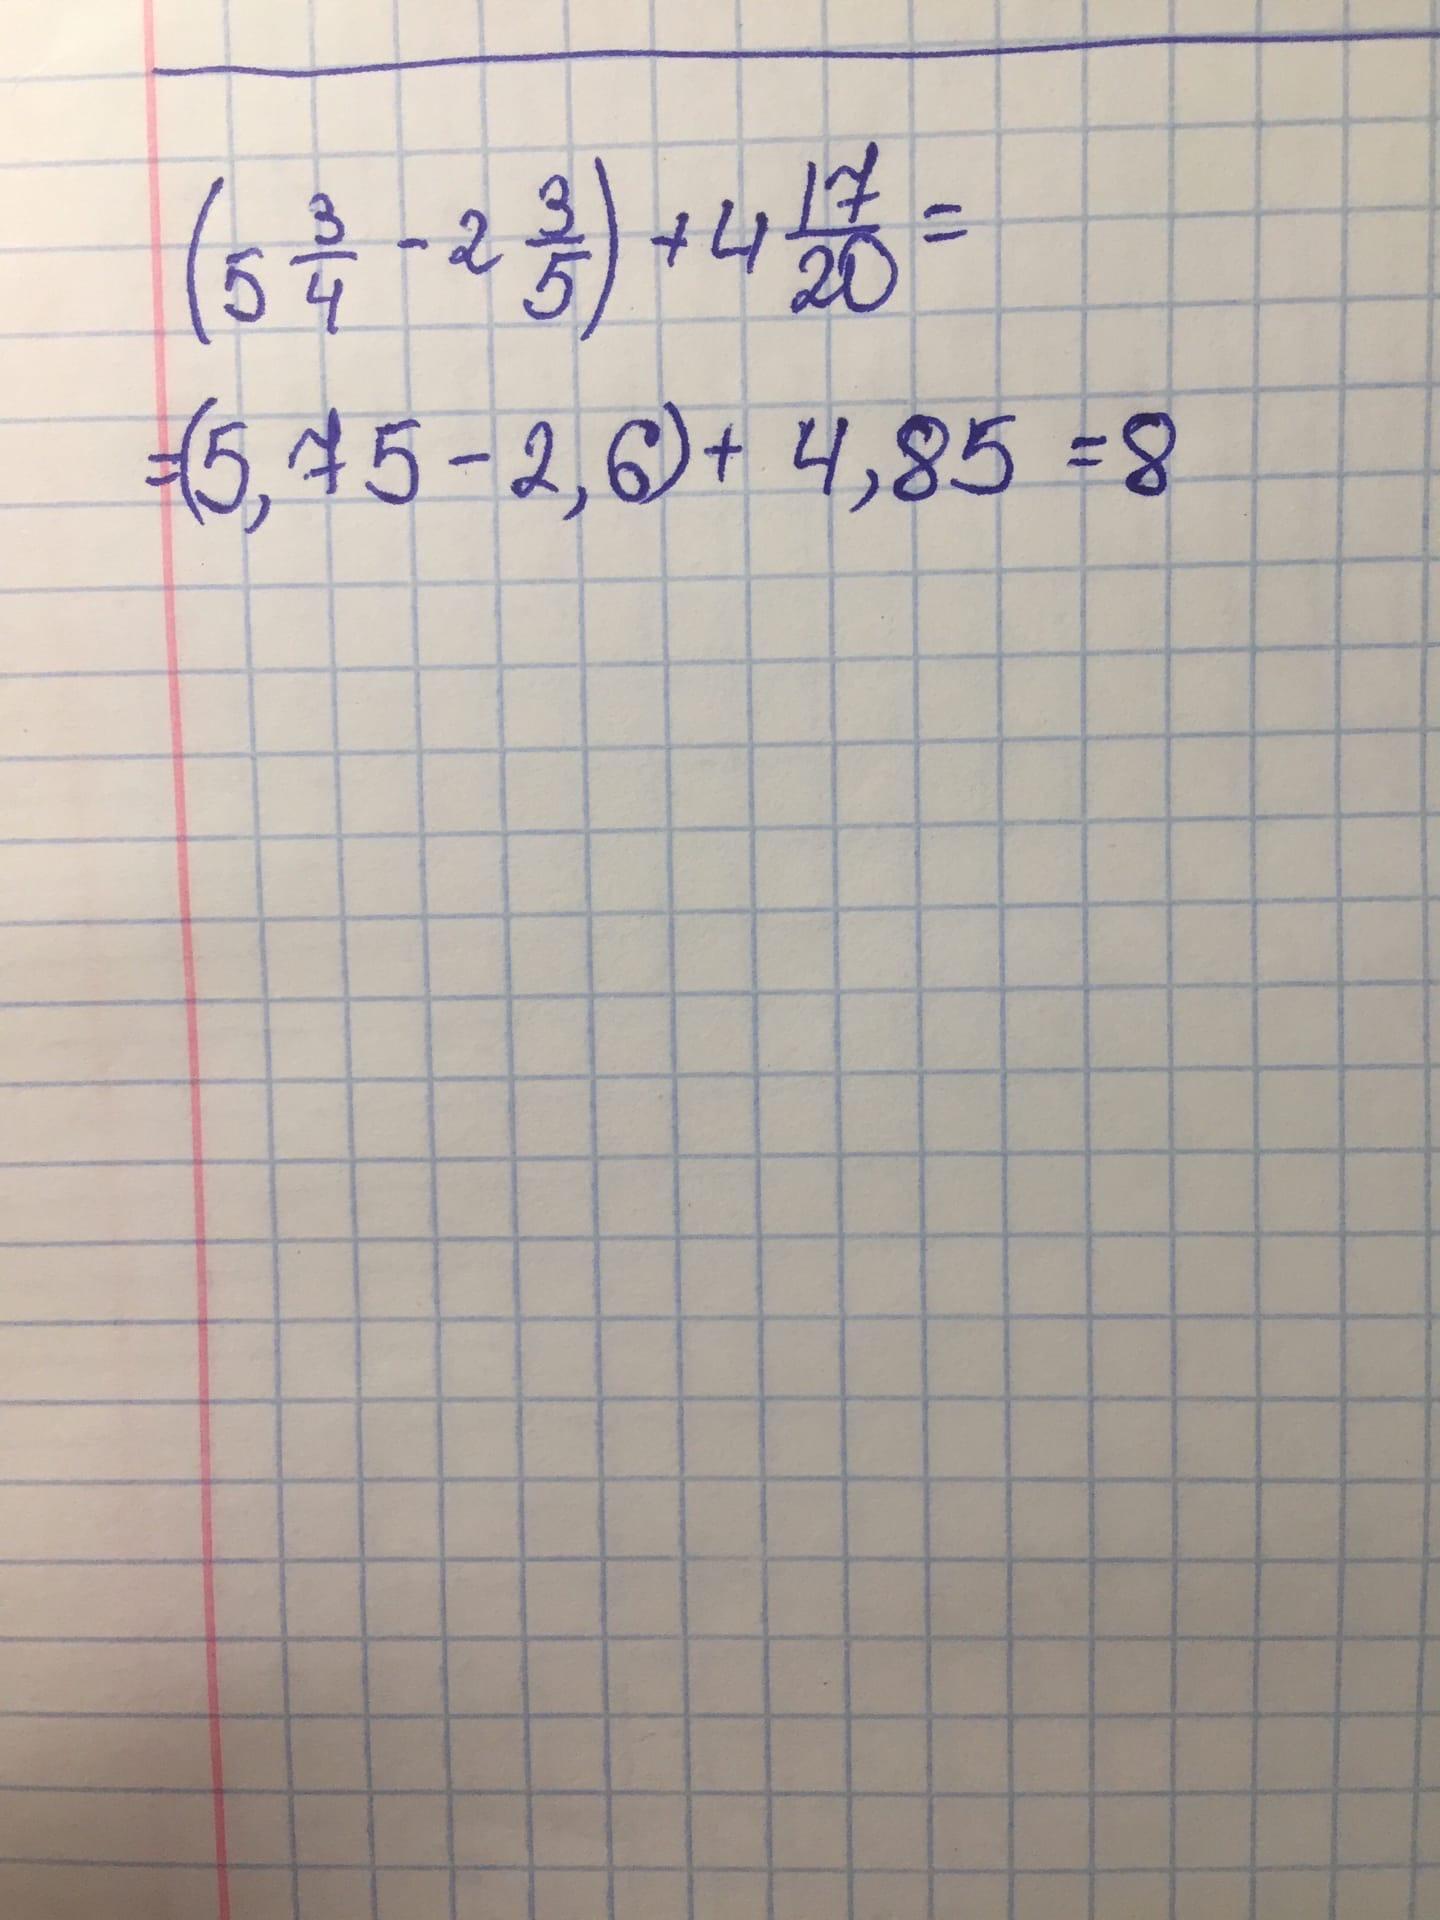 (5 3/4 - 2 3/5) + 4 17/20 =
=(5,75 - 2,6) + 4,85 = 8